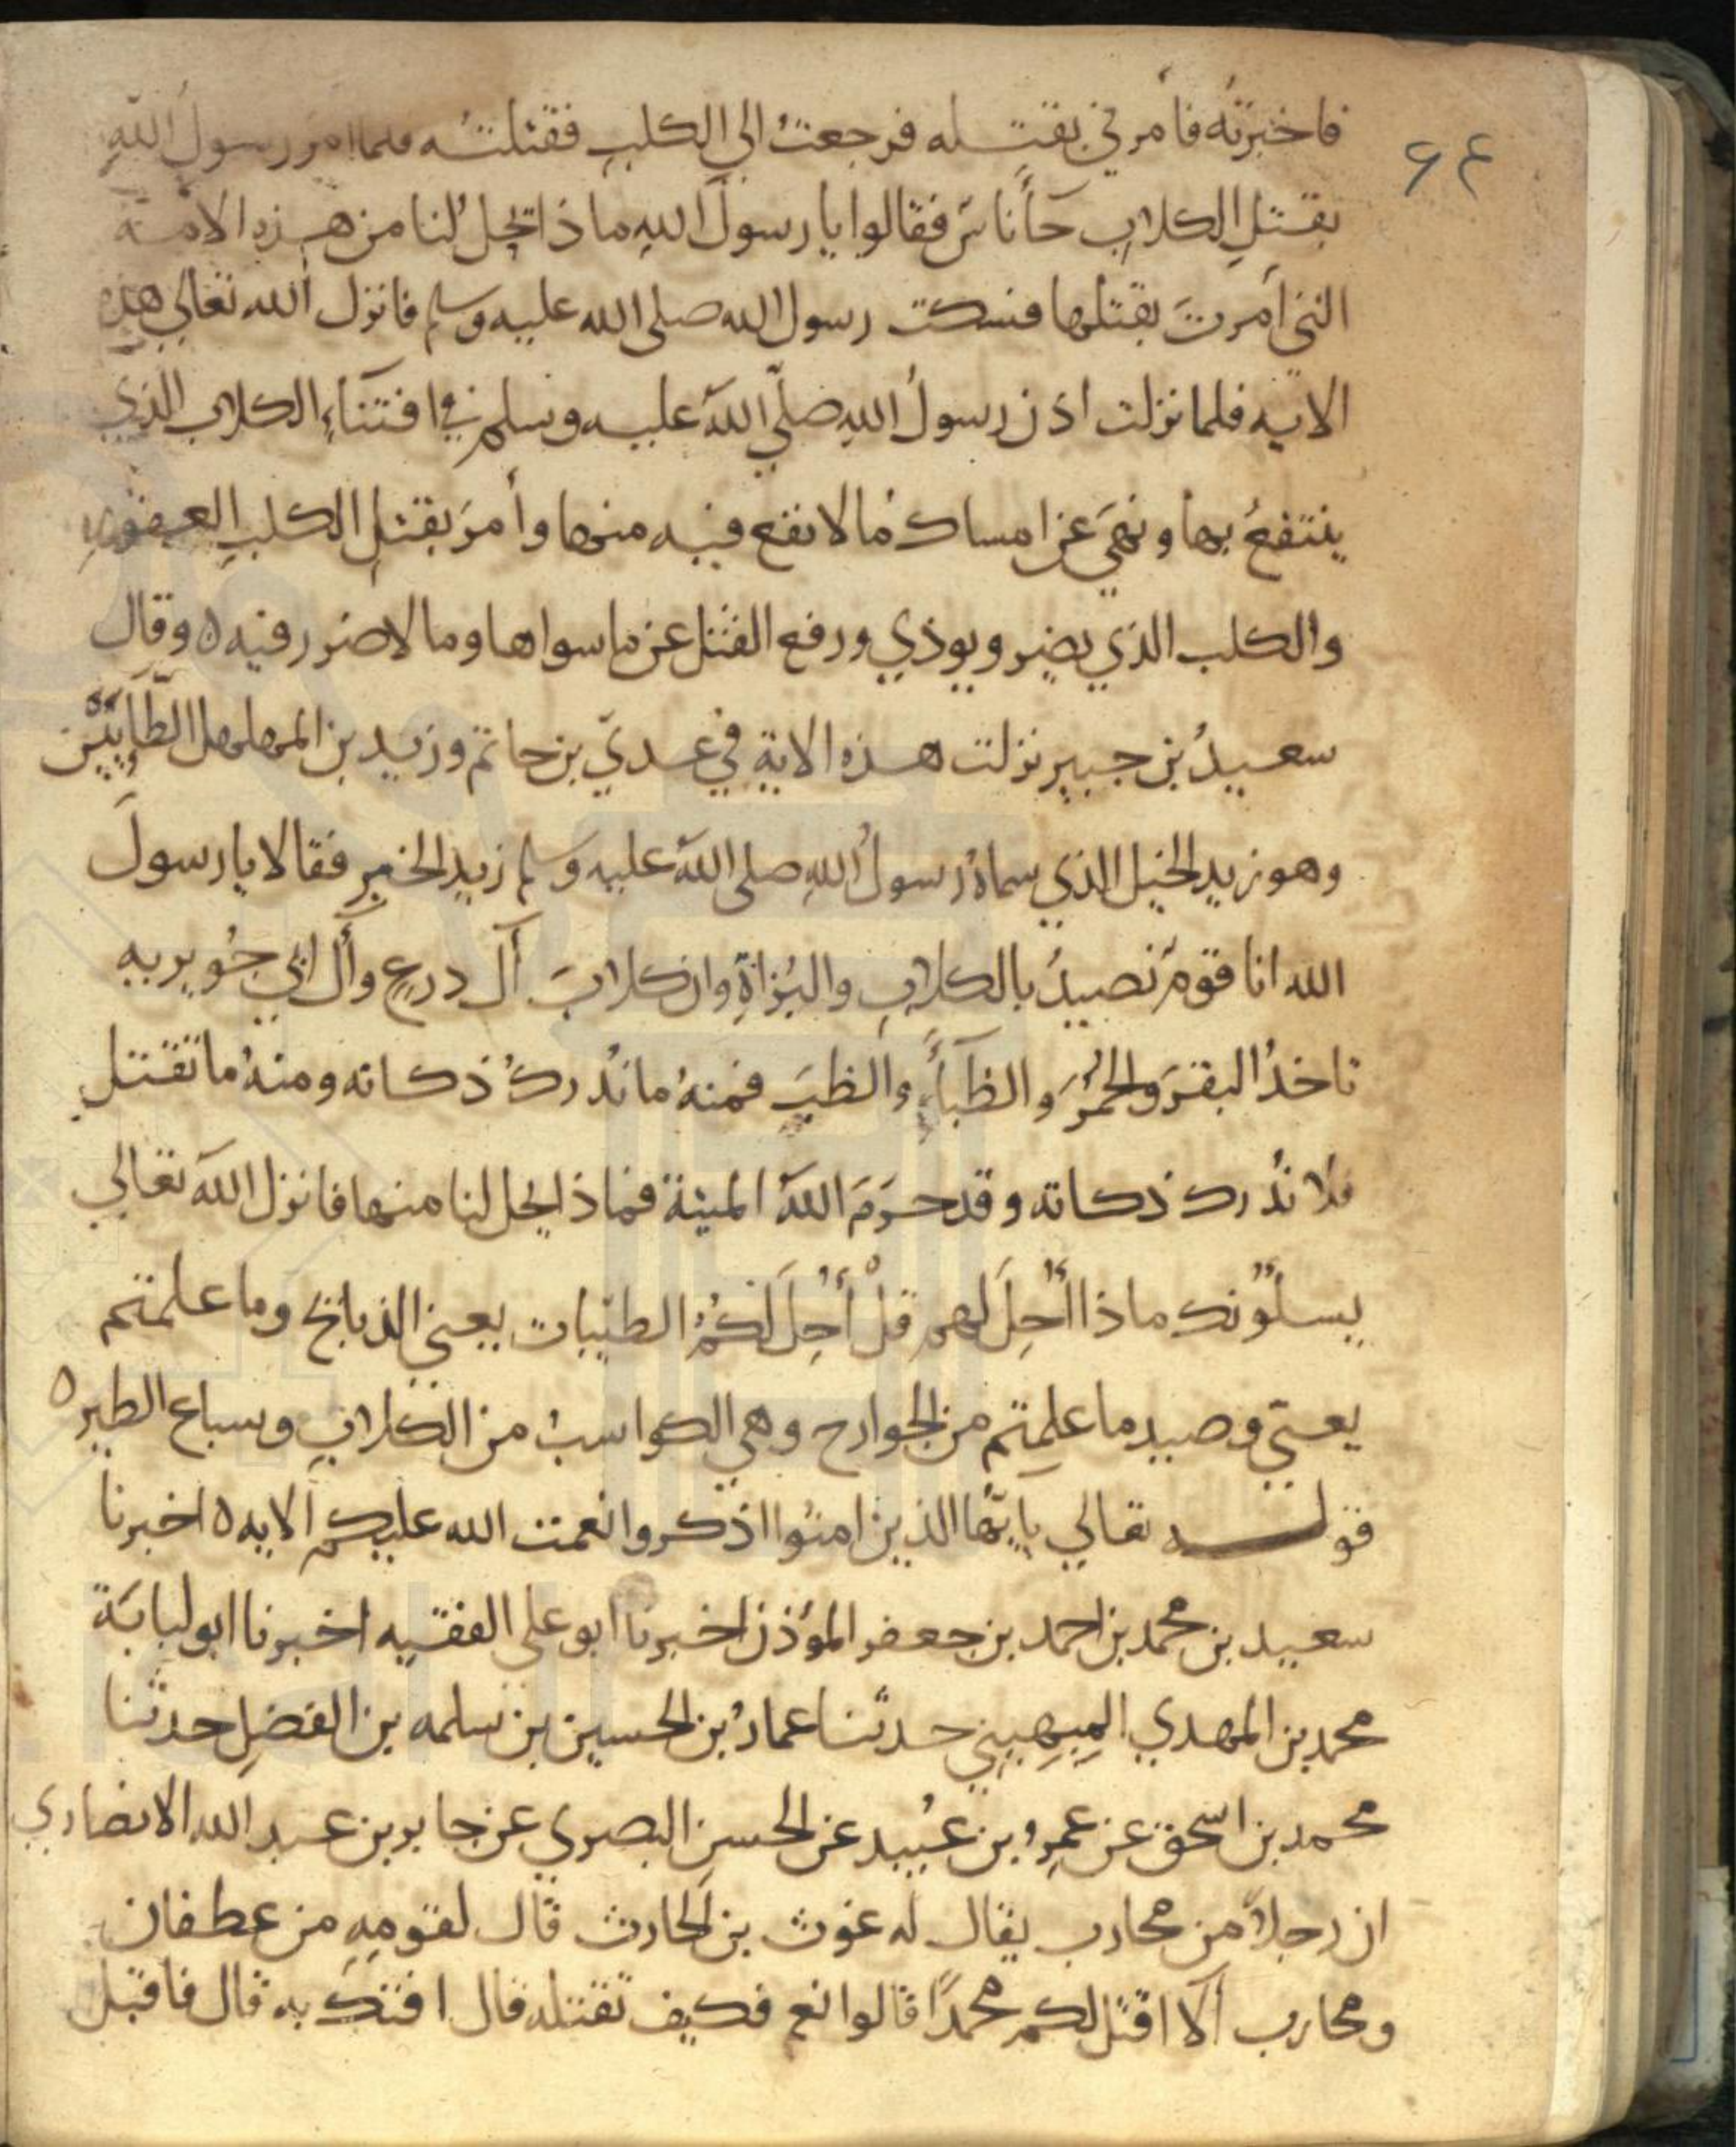 فاخبرتُه فأمرني بقتله فرجعتُ الي الكلبِ فقتلتُه فلما امرَ رسولُ اللهِ
٤٦
بقتلِ الكلابِ جأ ناسٌ فقالوا يا رسولَ اللهِ ماذا تحلُ لنا من هذه الامة
التي أمرتَ بقتلها فسكت رسول الله صلى الله عليه وسلم فانزل الله تعالي هذه
الايه فلما نزلت اذن رسولُ اللهِ صلّي اللهُ عليه وسلم في اقتناءِ الكلاب الذي
ينتفعُ بها ونهَي عن امساك ما لا نفع فيه منها وأمرَ بقتلِ الكلبِ العقور
والكلب الذي يضر ويوذي ورفع القتل عن ما سواها وما لا ضرر فيه ه وقال
سعيدُ بن جبير نزلت هذه الاية في عديّ بن حاتم وزيد بن المهلهل الطّايَيّن
وهو زيد الخيل الذي سماهُ رسولُ اللهِ صلى اللهُ عليه وسلم زيد الخير فقالا يا رسولَ
الله انا قومٌ نصيدُ بالكلابِ والبُزاةِ وان كلابَ آل درعٍ وآل ابي جُويريه
تاخذُ البقرَ والحُمُرَ والظبآءَ والظبَ فمنهُ ما نُدركُ ذكاته ومنهُ ما تقتل
فلا نُدرك ذكاته وقد حرَمَ اللهُ الميتة فماذا يحل لنا منها فانزل اللهُ تعالي
يسلُونك ماذا أُحِلَ لهم قلْ أُحِلَ لكُمُ الطيّبات يعني الذبائح وما علمتم
يعني وصيد ما علمتم من الجوارح وهي الكواسبُ من الكلابِ وسباع الطير ه
قوله تعالي يا ايّها الذين امنُوا اذكروا نعمت الله عليكم الايه ه اخبرنا
سعيد بن محمد بن احمد بن جعفر المؤذن اخبرنا ابو علي الفقيه اخبرنا ابو لبابَة
محمد بن المهدي المِيهِيني حدثنا عمارُ بن الحسين بن سلمه بن الفضلِ حدثنا
محمد بن اسحق عن عمرِو بن عُبيد عن الحسنِ البصري عن جابر بن عبد الله الانصاري
ان رجلاً من محارب يقال له غوث بن الحارث قال لقومِهِ من عطفان
ومحارب ألا اقتل لكم محمدًا قالوا نعم فكيف تقتله قال افتك به قال فاقبل